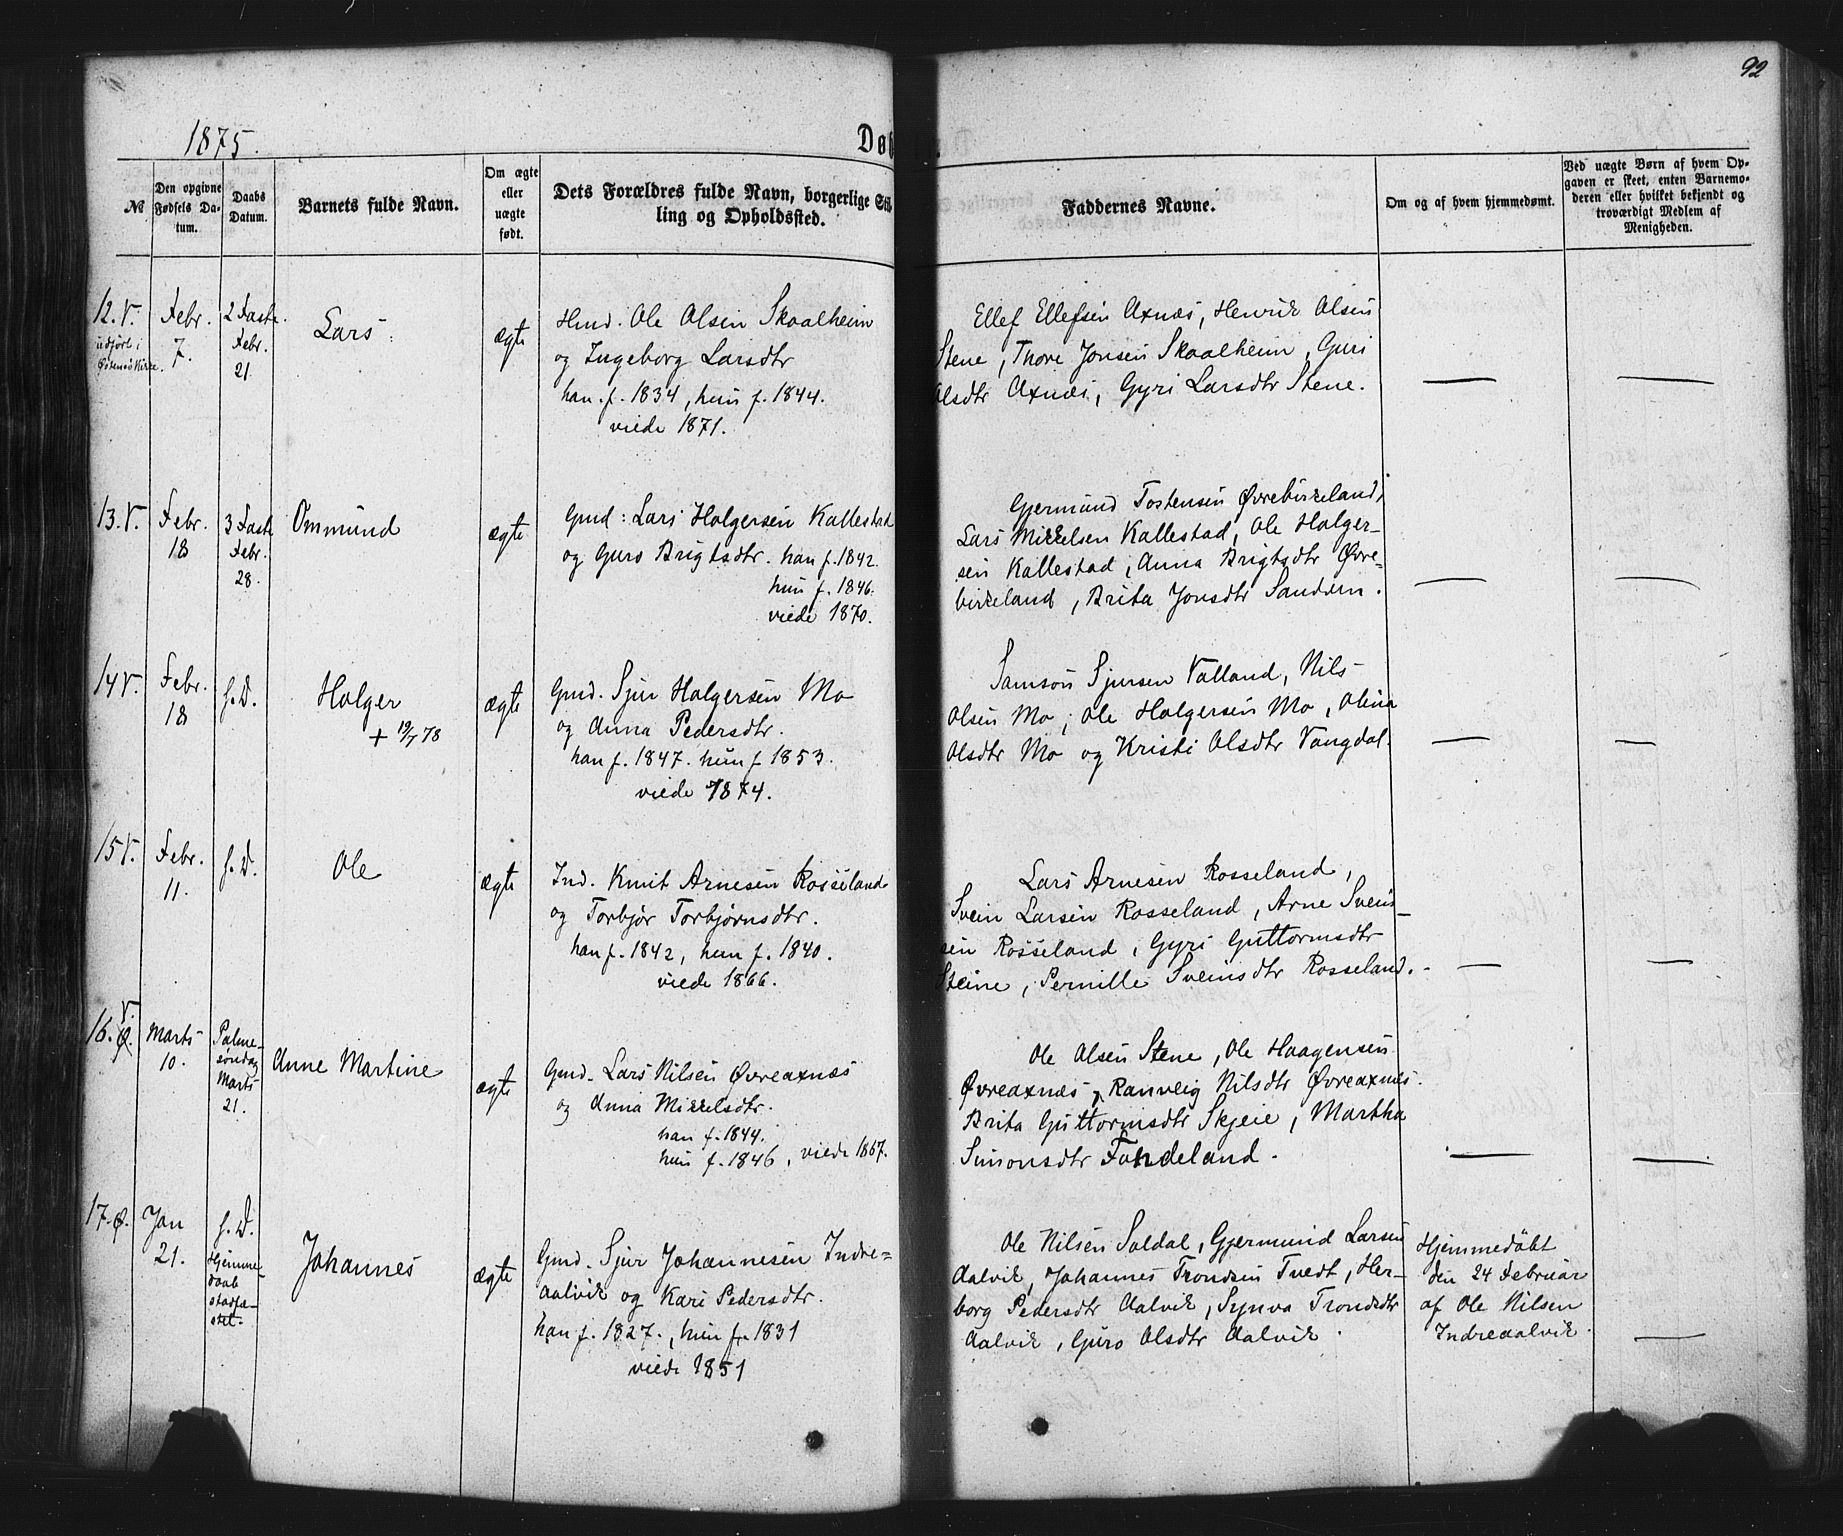 92
1875.
Døb
№
Den opgivne Fødsels Datum.
Daabs Datum.
Barnets fulde Navn.
Om ægte eller uægte født.
Dets Forældres fulde Navn, borgerlige Stilling og Opholdssted.
Faddernes Navne.
Om og af hvem hjemmedømt.
Ved uægte Børn af hvem Opgaven er skeet, enten Barnemoderen eller hvilket bekjendt og troværdigt Medlem af Menigheden.
12. V.
udført i
Østensø Kirke.
Febr.
7.
2 Faste
Febr.
21
Lars
ægte
Hmd. Ole Olsen Skaalheim
og Ingeborg Larsdtr
han f. 1834, hun f. 1844.
viede 1871.
Ellef Ellefsen Axnæs, Henrik Olsen
Stene, Thore Jonsen Skaalheim, Guri
Olsdtr Axnæs, Gyri Larsdtr Stene.
13. V.
Febr.
18
3 Faste
Febr.
28.
Ommund
ægte
Gmd: Lars Holgersen Kallestad
og Guro Brigtsdtr. han f. 1842.
hun f. 1846.
viede 1870.
Gjermund Tostensen Øvrebirkeland,
Lars Mikkelsen Kallestad, Ole Holger-
sen Kallestad, Anna Brigtsdtr Øvre-
birkeland, Brita Jonsdtr Sandven.
14 V.
Febr.
18
s. D.
Holger
+ 19/7 78
ægte
Gmd. Sjur Holgersen Mo
og Anna Pedersdtr.
han f. 1847. hun f 1853.
viede 1874.
Samson Sjursen Valland, Nils
Olsen Mo, Ole Holgersen Mo, Olina
Olsdtr Mo og Kristi Olsdtr Vangdal.
15 V.
Febr.
11.
s. D.
Ole
ægte
Ind. Knut Arnesen Rosseland
og Torbjør Torbjørnsdtr.
han f. 1842, hun f. 1840.
viede 1866.
Lars Arnesen Rosseland,
Svein Larsen Rosseland, Arne Svein-
sen Rosseland, Gyri Guttormsdtr
Steine, Pernille Sveinsdtr Rosseland.
V.
16. Ø.
Marts
10.
Palme-
søndag
Marts
21.
Anne Martine
ægte
Gmd. Lars Nilsen Øvreaxnæs
og Anna Mikkelsdtr.
han f. 1844.
hun f. 1846, viede 1867.
Ole Olsen Stene, Ole Haagensen
Øvreaxnæs, Ranveig Nilsdtr Øvreaxnæs.
Brita Guttormsdtr Skjeie, Martha
Simonsdtr Fondeland.
17. Ø.
Jan
21.
s. D.
Hjemme-
daab
stadfæ-
stet.
Johannes
ægte
Gmd. Sjur Johannesen Indre-
aalvik og Kari Pedersdtr.
han f. 1827., hun f. 1831
viede 1851
Ole Nilsen Soldal, Gjermund Larsen
Aalvik, Johannes Trondsen Tvedt, Her-
borg Pedersdtr Aalvik, Synva Trondsdtr
Aalvik, Guro Olsdtr Aalvik.
Hjemmedøbt
den 24 Februar
af Ole Nilsen
Indreaalvik.